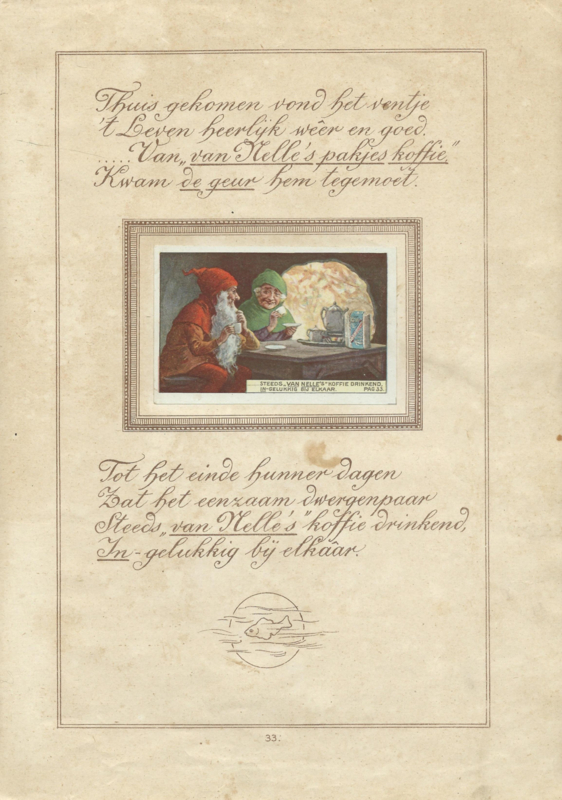 Thuis gekomen vond het ventje
't Leven heerlijk wêer en goed.
.....Van „van Nelle's pakjes koffie."
Kwam de geur hem tegemoet.
STEEDS „VAN NELLE'S" KOFFIE DRINKEND,
IN-GELUKKIG BIJ ELKAAR. PAG 33.
Tot het einde hunner dagen
Zat het eenzaam dwergenpaar
Steeds „van Nelle's" koffie drinkend,
In-gelukkig bij elkâar.
33.